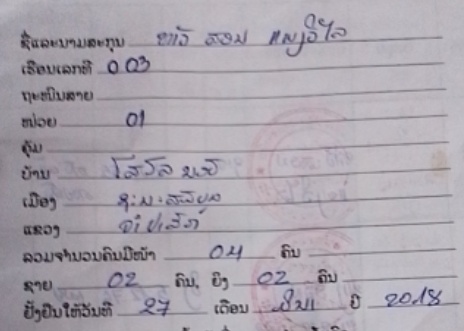 ຊື່ແລະນາມສະກຸນ ທ້າວ ສອນ
ເຮືອນເລກທີ 003
ຖະໜົນສາຍ
ໜ່ວຍ 01
ຄຸ້ມ
ບ້ານ
ເມືອງ ຊະນະສົມບູນ
ແຂວງ ຈຳປາສັກ
ລວມຈຳນວນຄົນມີໜ້າ 04 ຄົນ
ຊາຍ 02 ຄົນ, ຍິງ 02 ຄົນ
ຢັ້ງຢືນໃຫ້ວັນທີ 27 ເດືອນ ມີນາ ປີ 2018